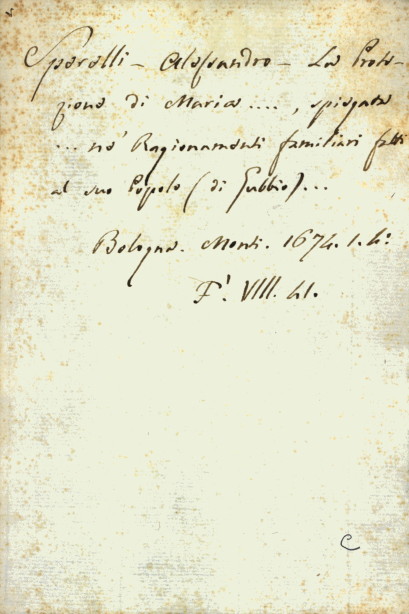 Sperelli - Alessandro - La Prote-
zione di Maria ...., spiegata
... ne' Ragionamenti familiari fatti
al suo Popolo (di Gubbio)...
Bologna. Monti. 1674. 1. 4:
F'. VIII. 41.
C